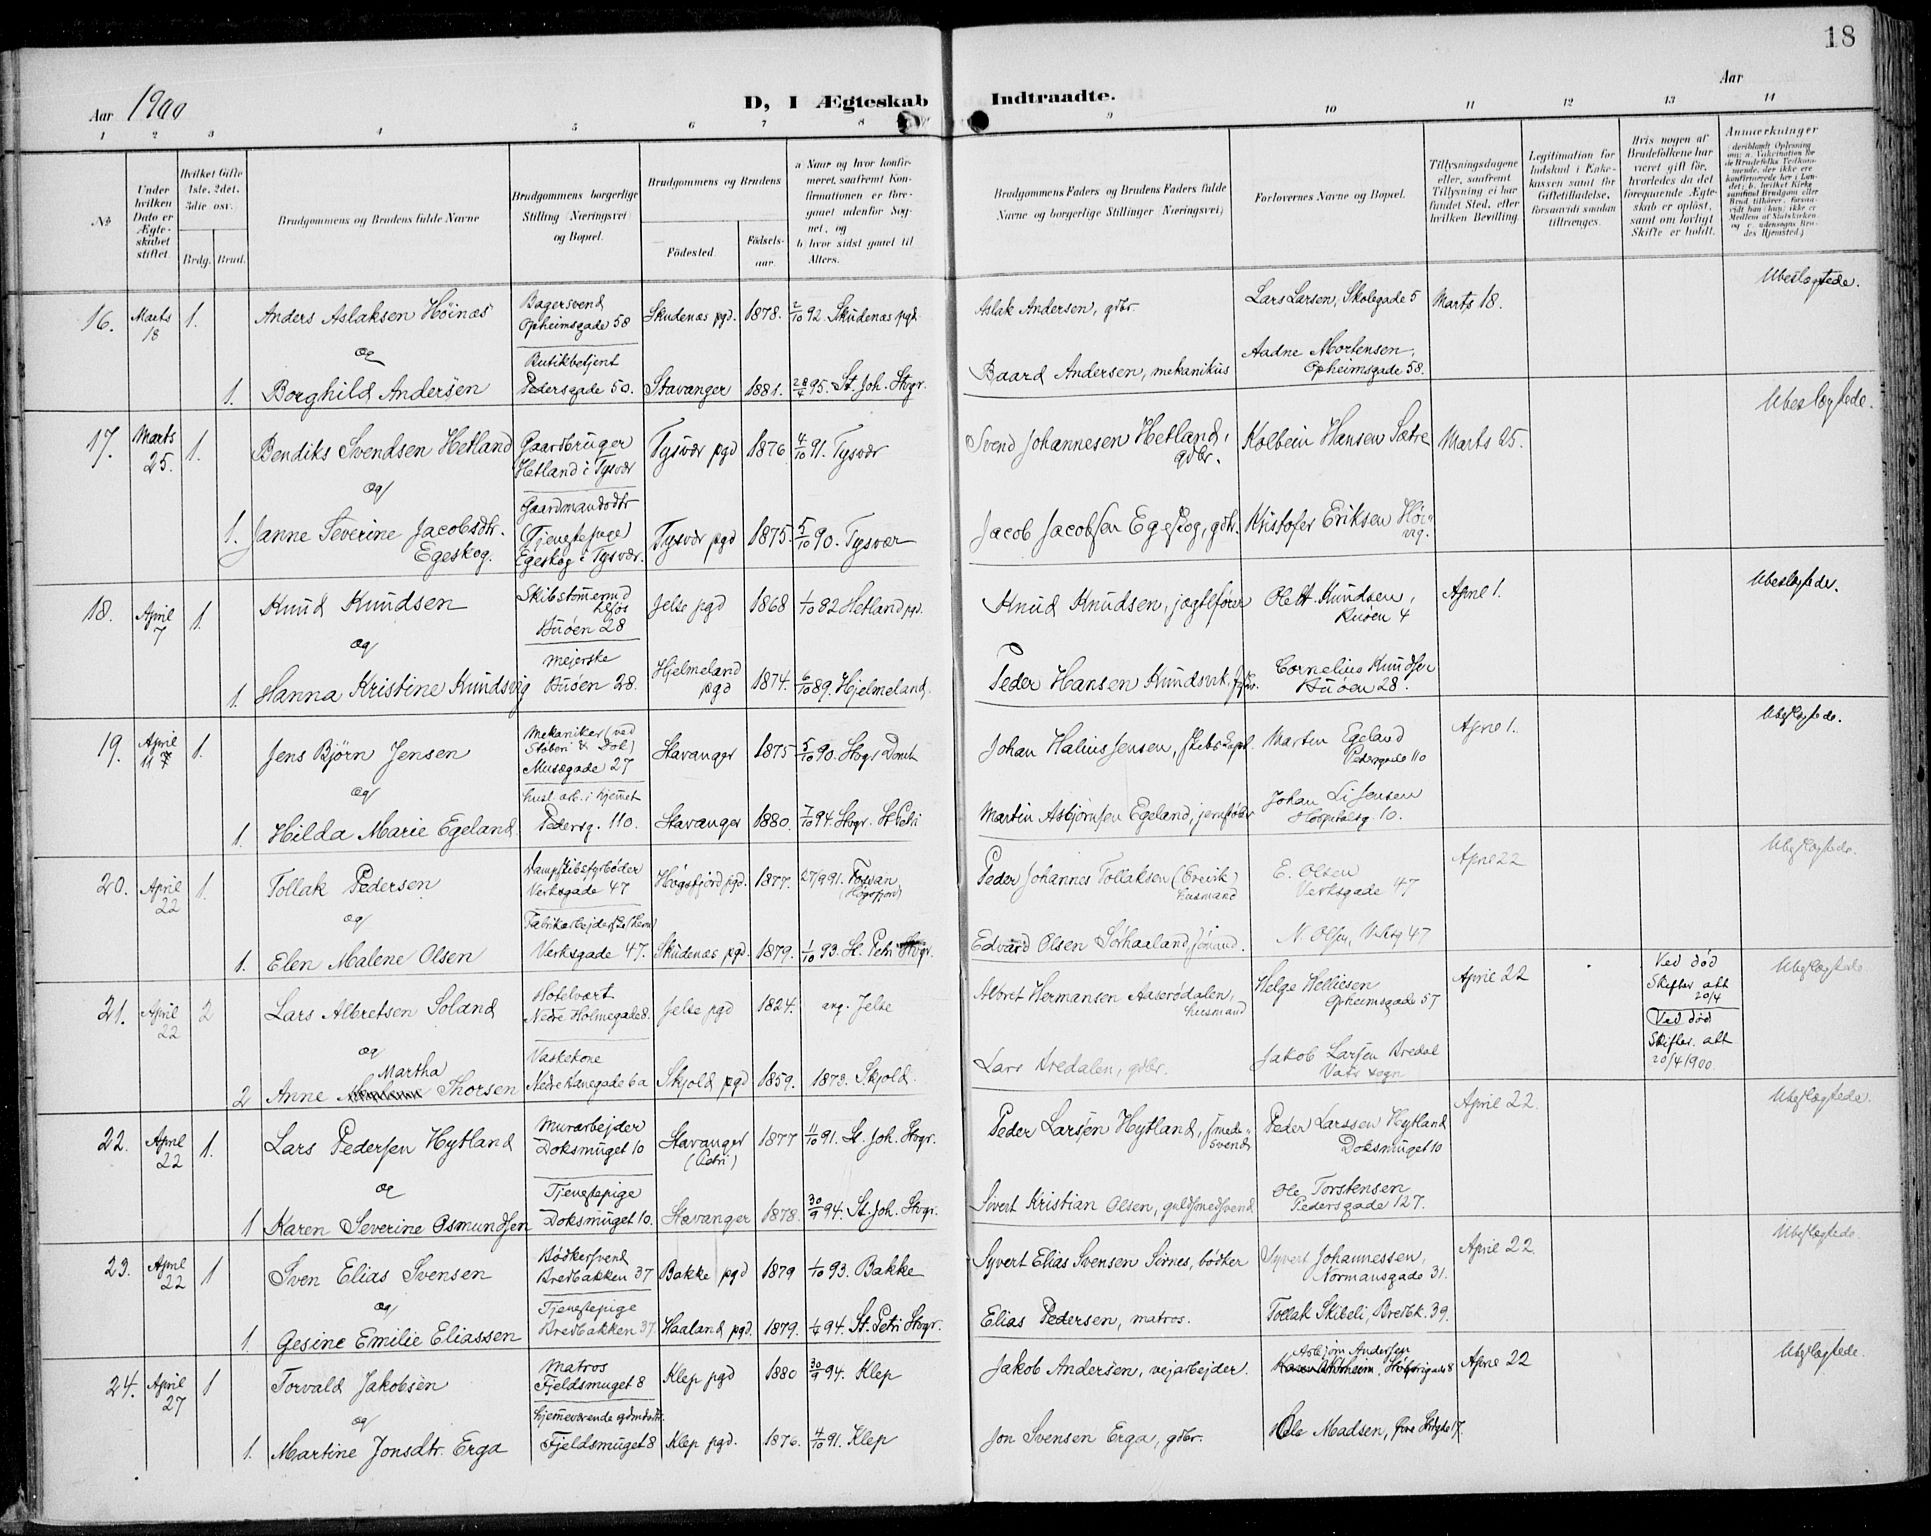 18
Aar 1900
D, I Ægteskab Indtraadte.
Aar
1 2 3 4 5 6 7 8 9 10 11 12 13 14
No
Under hvilken Dato er Ægteskabet stiftet.
Hvilket Gifte 1ste, 2det, 3die osv.
Brdg. Brud.
Brudgommens og Brudens fulde Navne
Brudgommens borgerlige Stilling (Næringsvei) og Bopæl.
Brudgommens og Brudens
Födested.
Födselsaar.
a. Naar og hvor konfirmeret, saafremt Konfirmationen er foregaaet udenfor Sognet, og
b. hvor sidst gaaet til Alters.
Brudgommens Faders og Brudens Faders fulde Navne og borgerlige Stillinger (Næringsvei)
Forlovernes Navne og Bopæl.
Tillysningsdagene eller, saafremt Tillysning ei har fundet Sted, efter hvilken Bevilling
Legitimation for Indskud i Enkekassen samt for Giftetilladelse, forsaavidt saadan tiltrænges.
Hvis nogen af Brudefolkene har været gift før, hvorledes da det foregaaende Ægteskab er oplöst, samt om lovligt Skifte er holdt.
Anmerkninger
16. Marts 18 1. Anders Aslaksen Höinæs Bagersvend Opheimsgade 58 Skudenæs pgd. 1878. 2/10 92. Skudenæs pgd. Aslak Andersen, gdbr. Lars Larsen, Skolegade 5 Marts 18. Ubeslægtede.
og
1. Borghild Andersen Butikbetjent Pedersgade 50. Stavanger 1881. 95. St. Joh. Stvgr. Baard Andersen, mekanikus Aadne Mortensen, Opheimsgade 58.
17. Marts 25. 1. Bendiks Svendsen Hetland Gaardbruger Hetland i Tysvær Tysvær pgd 1876 4/10 91. Tysvær Svend Johannesen Hetland, gdbr. Kolbein Hansen Sætre Marts 25. Ubeslægtede.
og
1. Janne Severine Jacobsdtr. Egeskog. Gaardmandsdtr (Tjenestepige) Egeskog i Tysvær. Tysvær pgd 1875 5/10 90. Tysvær Jacob Jacobsen Egeskog, gdbr. Kristofer Eriksen
18. April 7 1. Knud Knudsen Skibstömmermd Buöen 28 Jelse pgd 1868 1/10 82 Hetland pgd. Knud Knudsen, jagtfører Knudsen, Buöen 4 April 1. Ubeslægtede.
og
1. Hanna Kristine Knudsvig Mejerske Buöen 28. Hjelmeland pgd 1874. 6/10 89. Hjelmeland. Peder Hansen Knudsvik, Cornelius Knudsen Buöen 28.
19. April 11 1. Jens Björn Jensen Mekaniker (ved Stöberi & Dok) Musægade 27 Stavanger 1875 5/10 90. Stvgr Domk Johan Halius Jensen, skibskapt. Martin Egeland Pedersgade 110 April 1. Ubeslægtede.
og
1. Hilda Marie Egeland husl. arb. i hjemmet Pedersg. 110. Stavanger 1880. 7/10 94. Stvgr. St. Petri Martin Asbjörnsen Egeland, Johan Jensen Hospitalsg. 10.
20. April 22 1. Tollak Pedersen Dampskibsfyrböder Verksgade 47 Högsfjord pgd. 1877. 27/9 91. Fossan (Högsfjord) Peder Johannes Tollaksen (Breivik) husmand E. Olsen Verksgade 47 April 22 Ubeslægtede.
og
1. Elen Malene Olsen Verksgade 47. Skudenæs pgd. 1879. 1/10 93. St. Petri Stvgr. Edvard Olsen Sörhaaland, N. Olsen, Verksg 47
21. April 22 2 Lars Albretsen Soland Hotelvært Nedre Holmegade 8. Jelse pgd 1824. ang. Jelse Albret Hermansen Aaserödalen, husmand Helge Heliesen Opheimsgade 57 April 22 Ved död Skifter. att 20/4 Ubeslægtede
og
2 Anne Martha Thorsen Vaskekone Nedre Banegade 6a Skjold pgd 1859. 1873. Skjold. Lars Bredalen, gdbr. Jakob Larsen Bredal Vats sogn Ved död Skifter. att 20/4 1900.
22. April 22 1. Lars Pedersen Hytland Murarbejder Doksmuget 10 Stavanger (Petri) 1877 11/10 91. St. Joh. Stvgr. Peder Larsen Hytland, smedesvend Peder Larssen Hytland Doksmuget 10 April 22. Ubeslægtede.
og
1 Karen Severine Osmundsen Tjenestepige Doksmuget 10. Stavanger 1878. 30/9 94. St. Joh. Stvgr. Sivert Kristian Olsen, guldsmedsvend Ole Torstensen Pedersgade 127.
23. April 22 1 Sven Elias Svensen Bödkersvend Bredbakken 37 Bakke pgd 1879 1/10 93. Bakke Syvert Elias Svensen Sirnes, bödker Syvert Johannessen, Normansgade 31. April 22. Ubeslægtede.
og
1. Gesine Emilie Eliassen Tjenestepige Bredbakken 37. Haaland pgd. 1879. 94. St. Petri Stvgr. Elias Pedersen, matros. Tollak Skibeli, Bredbk. 39.
24. April 27 1 Torvald Jakobsen Matros Fjeldsmuget 8 Klep pgd 1880 30/9 94. Klep Jakob Andersen, vejarbejder. Asbjörn Andersen April 22 Ubeslægtede.
og
1. Martine Jonsdtr. Erga hjemmeværende gdmdsdtr. Fjeldsmuget 8 Klep pgd. 1876. 4/10 91. Klep Jon Svensen Erga, gdbr. Ole Madsen,